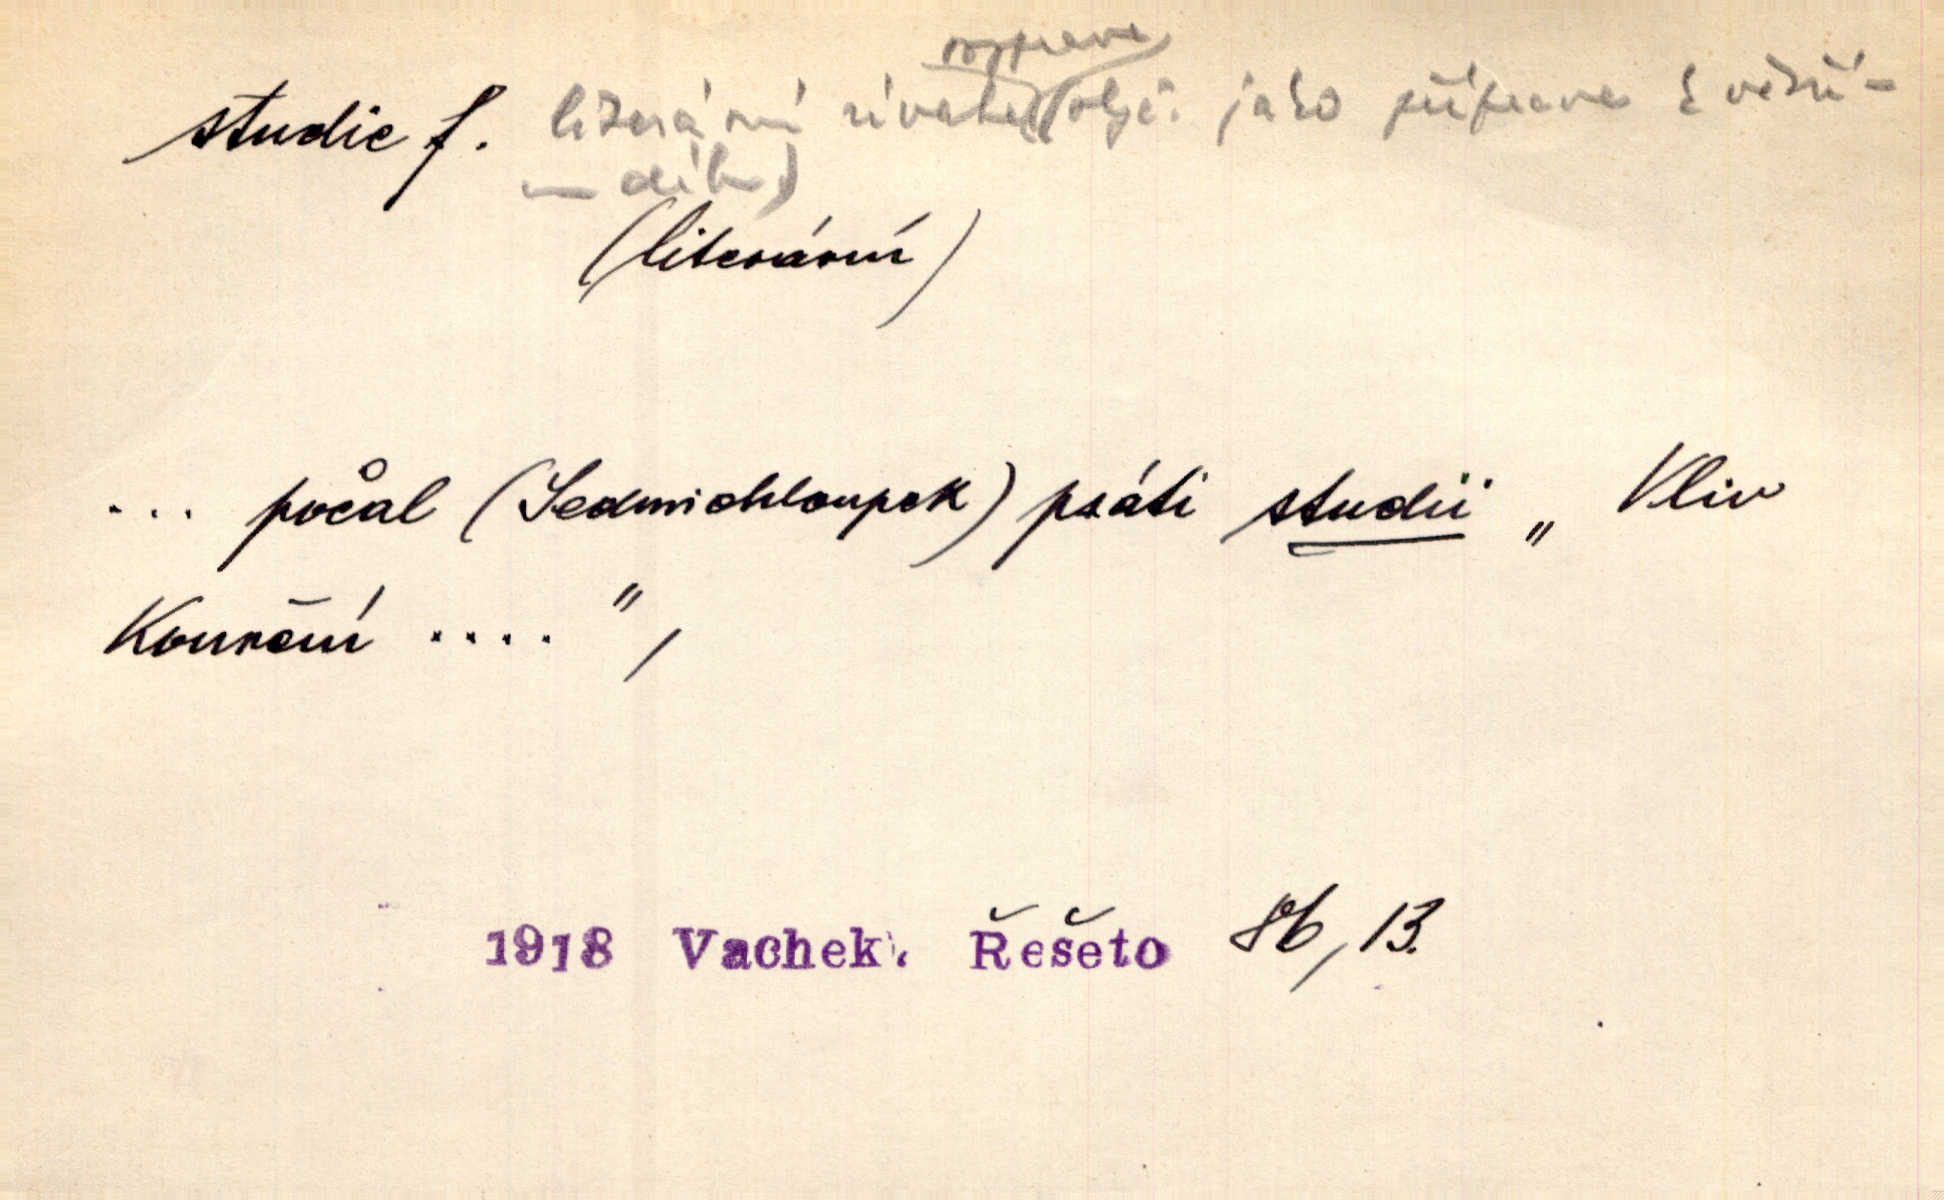 rozprava
studie f. literární úvaha (obyč. jako příprava k většímu
dílu)
(literární)
... počal (Sedmichloupek) psáti studii „Vliv
Kouření ....",
1918 Vachek. Řešeto 86, 13.